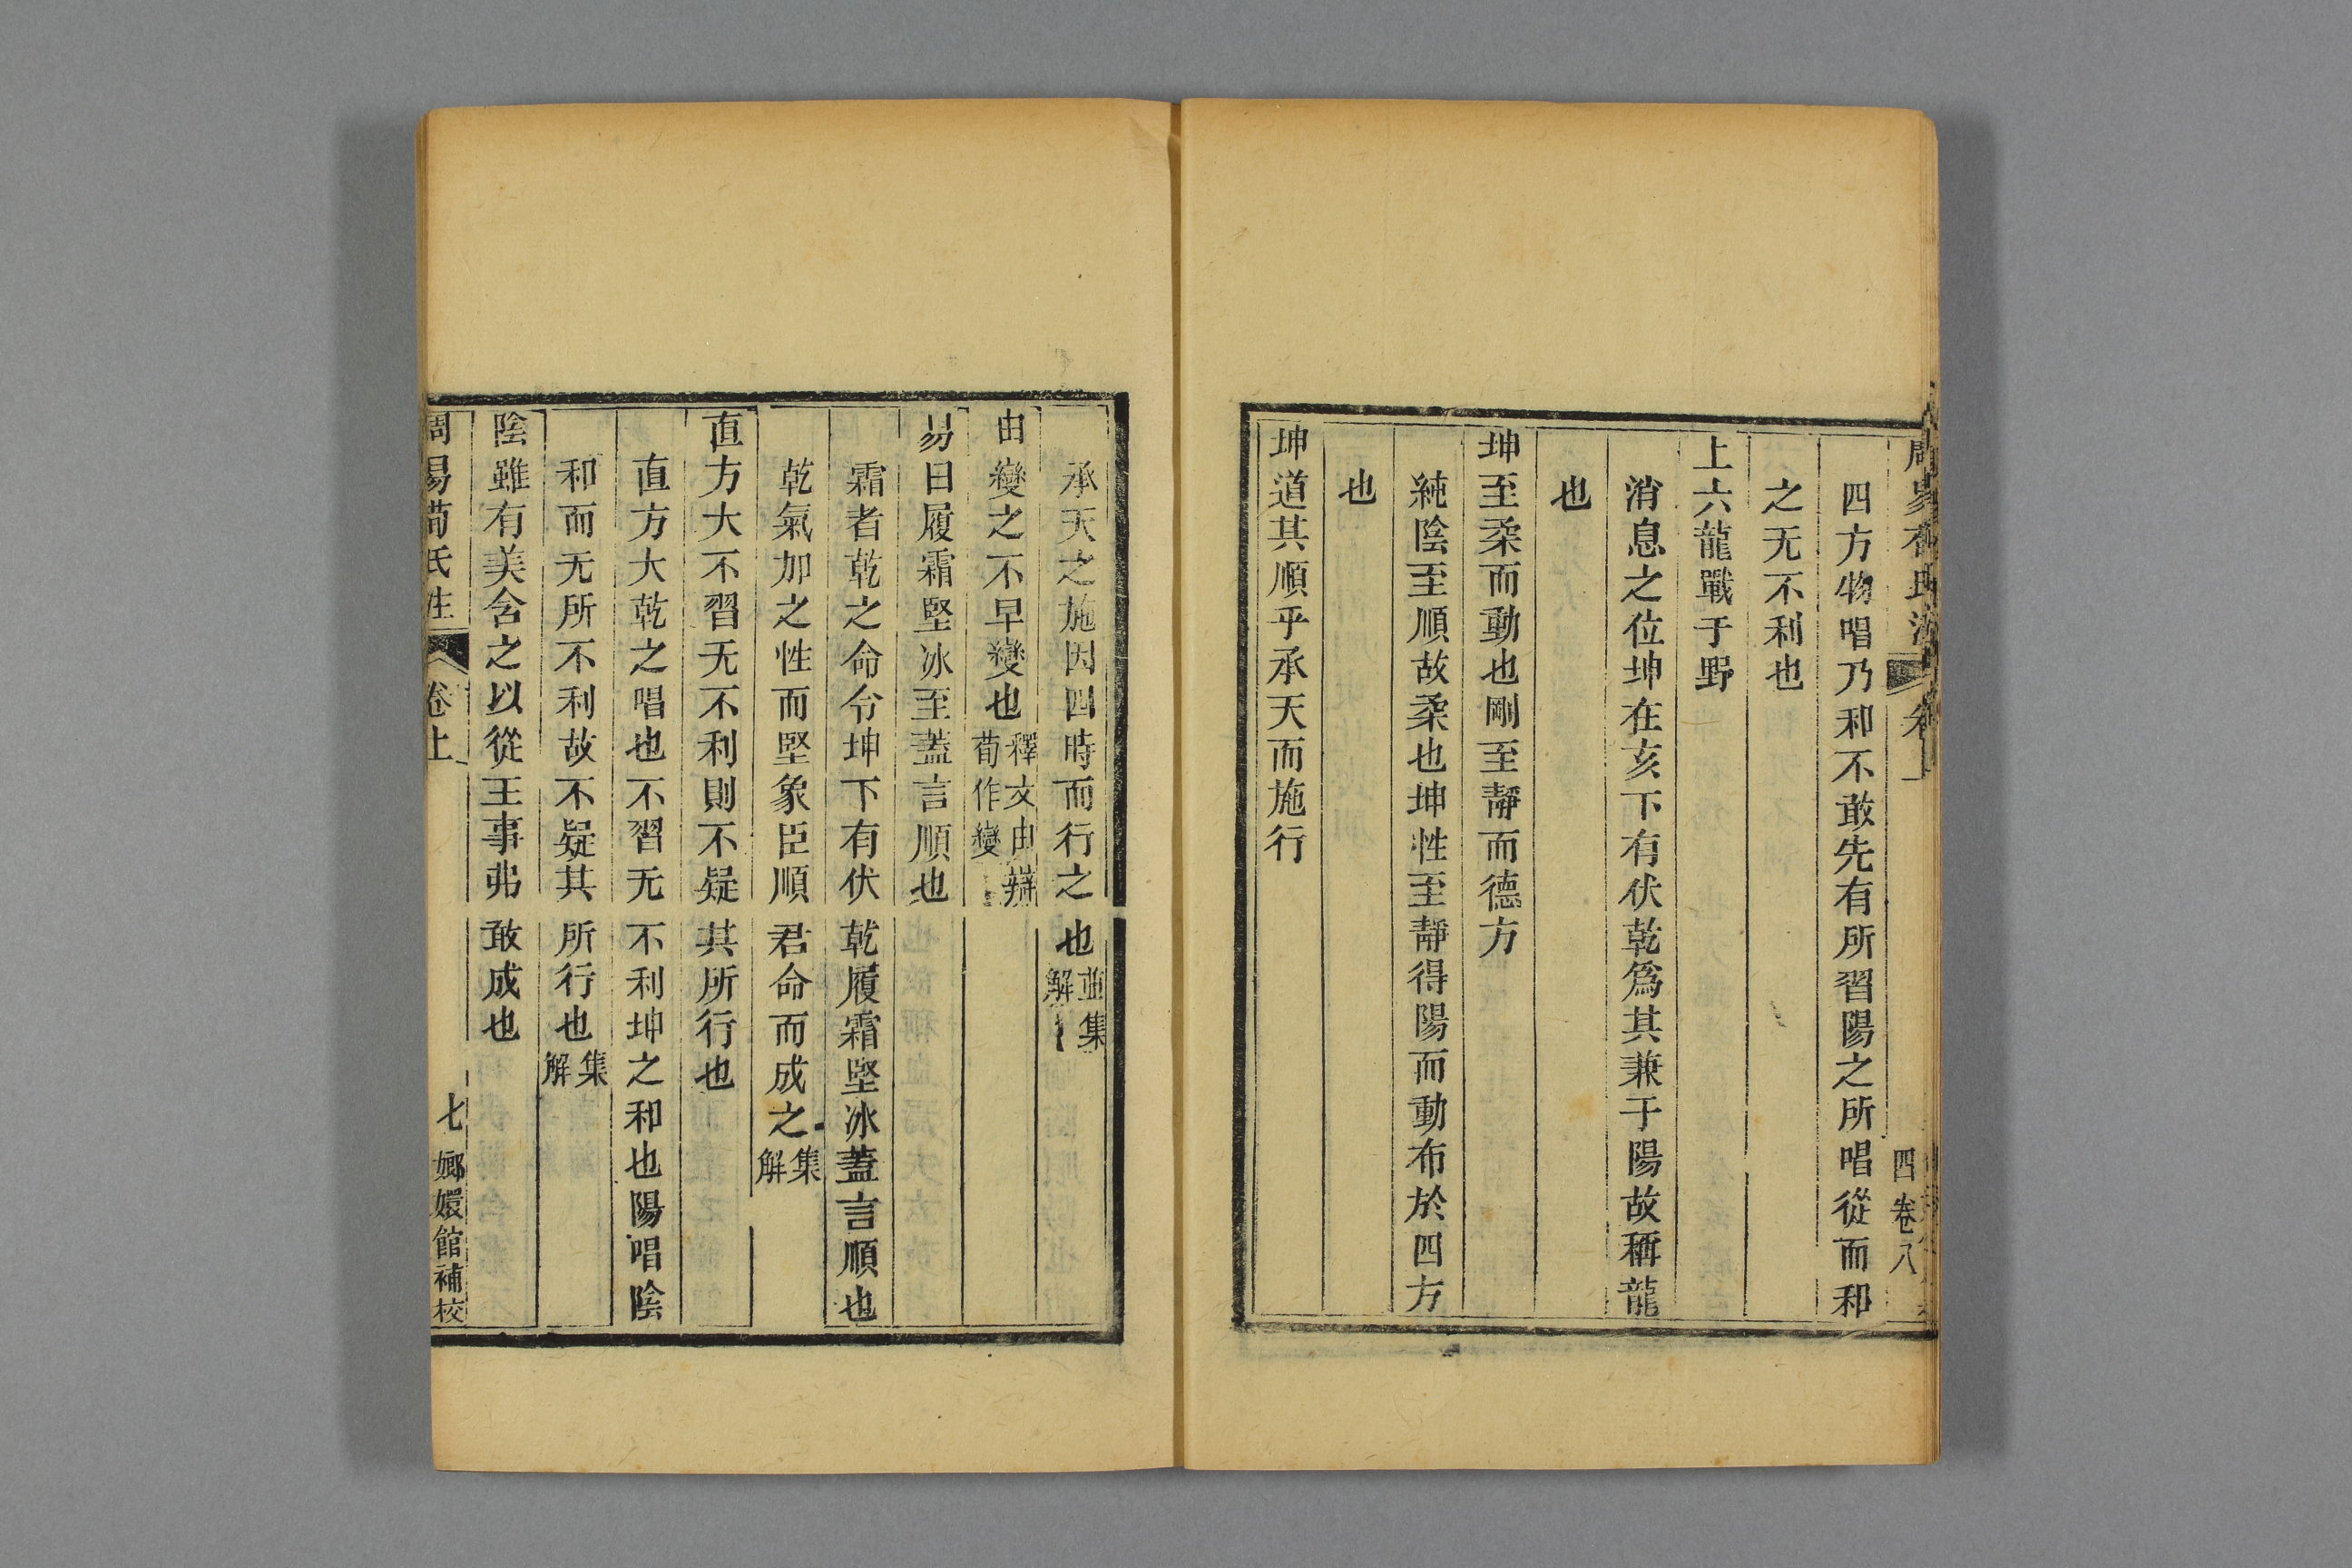 周易荀氏注 卷上 四 卷八
四方物唱乃和不敢先有所習陽之所唱從而和
之无不利也
上六龍戰于野
消息之位坤在亥下有伏乾爲其兼于陽故稱龍
也
坤至柔而動也剛至靜而德方
純陰至順故柔也坤性至靜得陽而動布於四方
也
坤道其順乎承天而施行
承天之施因四時而行之也並集解
由變之不早變也釋文由辯荀作變
易曰履霜堅冰至蓋言順也
霜者乾之命令坤下有伏乾履霜堅冰蓋言順也
乾氣加之性而堅象臣順君命而成之集解
直方大不習无不利則不疑其所行也
直方大乾之唱也不習无不利坤之和也陽唱陰
和而无所不利故不疑其所行也集解
陰雖有美含之以從王事弗敢成也
周易荀氏注 卷上 七 嫏嬛館補校